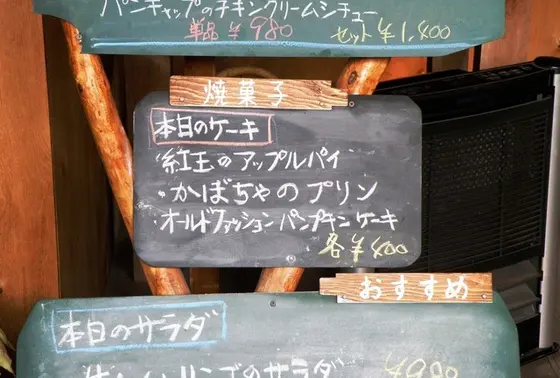 パンキャップのチキンクリームシチュー
単品 ¥980 セット ¥1,400
焼菓子
本日のケーキ
・紅玉のアップルパイ
・かぼちゃのプリン
・オールドファッションパンプキンケーキ
各¥400
おすすめ
本日のサラダ
リンゴのサラダ